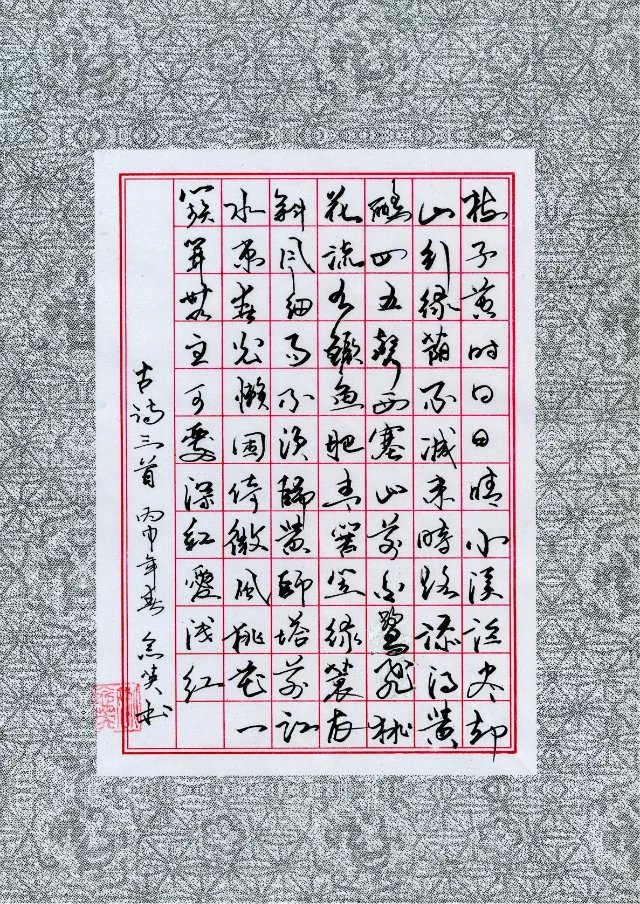 梅子黄时日日晴小溪泛尽却
山行绿荫不减来時路添得黄
鹂四五聲西塞山前白鹭飛桃
花流水鳜鱼肥青箬笠绿蓑衣
斜风细雨不须歸黄師塔前江
水东春光懒困倚微风桃花一
簇开無主可爱深红爱浅红
古诗三首 丙申年春 书